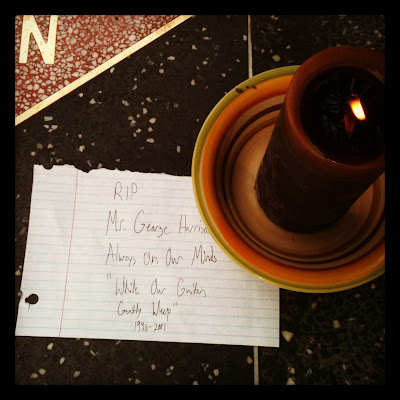 N
RIP
Mr. George Harriso
Always On Our Minds
"While Our Guitars
Gently Weep"
1943-2001